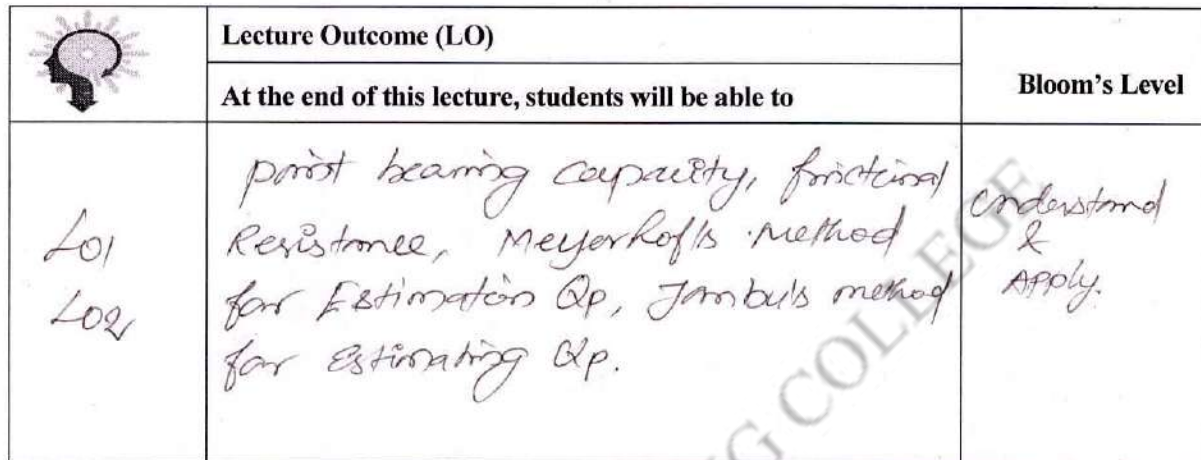 Lecture Outcome (LO)
At the end of this lecture, students will be able to
Bloom's Level
LO1
LO2
point bearing capacity, frictional
Resistance, Meyerhof's method
for Estimation Qp, Janbu's method
for Estimating Qp.
Understand
&
Apply.
G COLLEGE